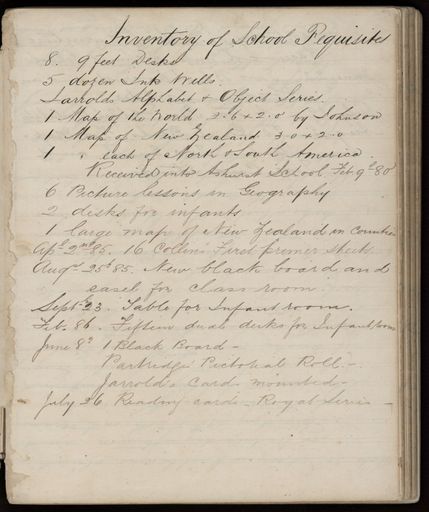 Inventory of School Requisites
8. 9 feet Desks
5 dozen Ink Wells.
Jarrolds Alphabet & Object Series.
1 Map of the World 3·6 + 2·0 by Johnson
1 Map of New Zealand 3·0 + 2·0
1 " each of North & South America
Received into Ashurst School Feb 9th 80
6 Picture lessons in Geography
2 desks for infants
1 large map of New Zealand in Counties
Apl 2nd 85. 16 Collins First primer sheets
Augt 25th 85. New black board and
easel for class room
Septr 23. Table for Infant room.
Feb. 86. Fifteen dual desks for Infant room
June 8th 1 Black Board –
Partridge Pictorial Roll. –
Jarrolds Cards mounted –
July 26 Reading cards – Royal Series –